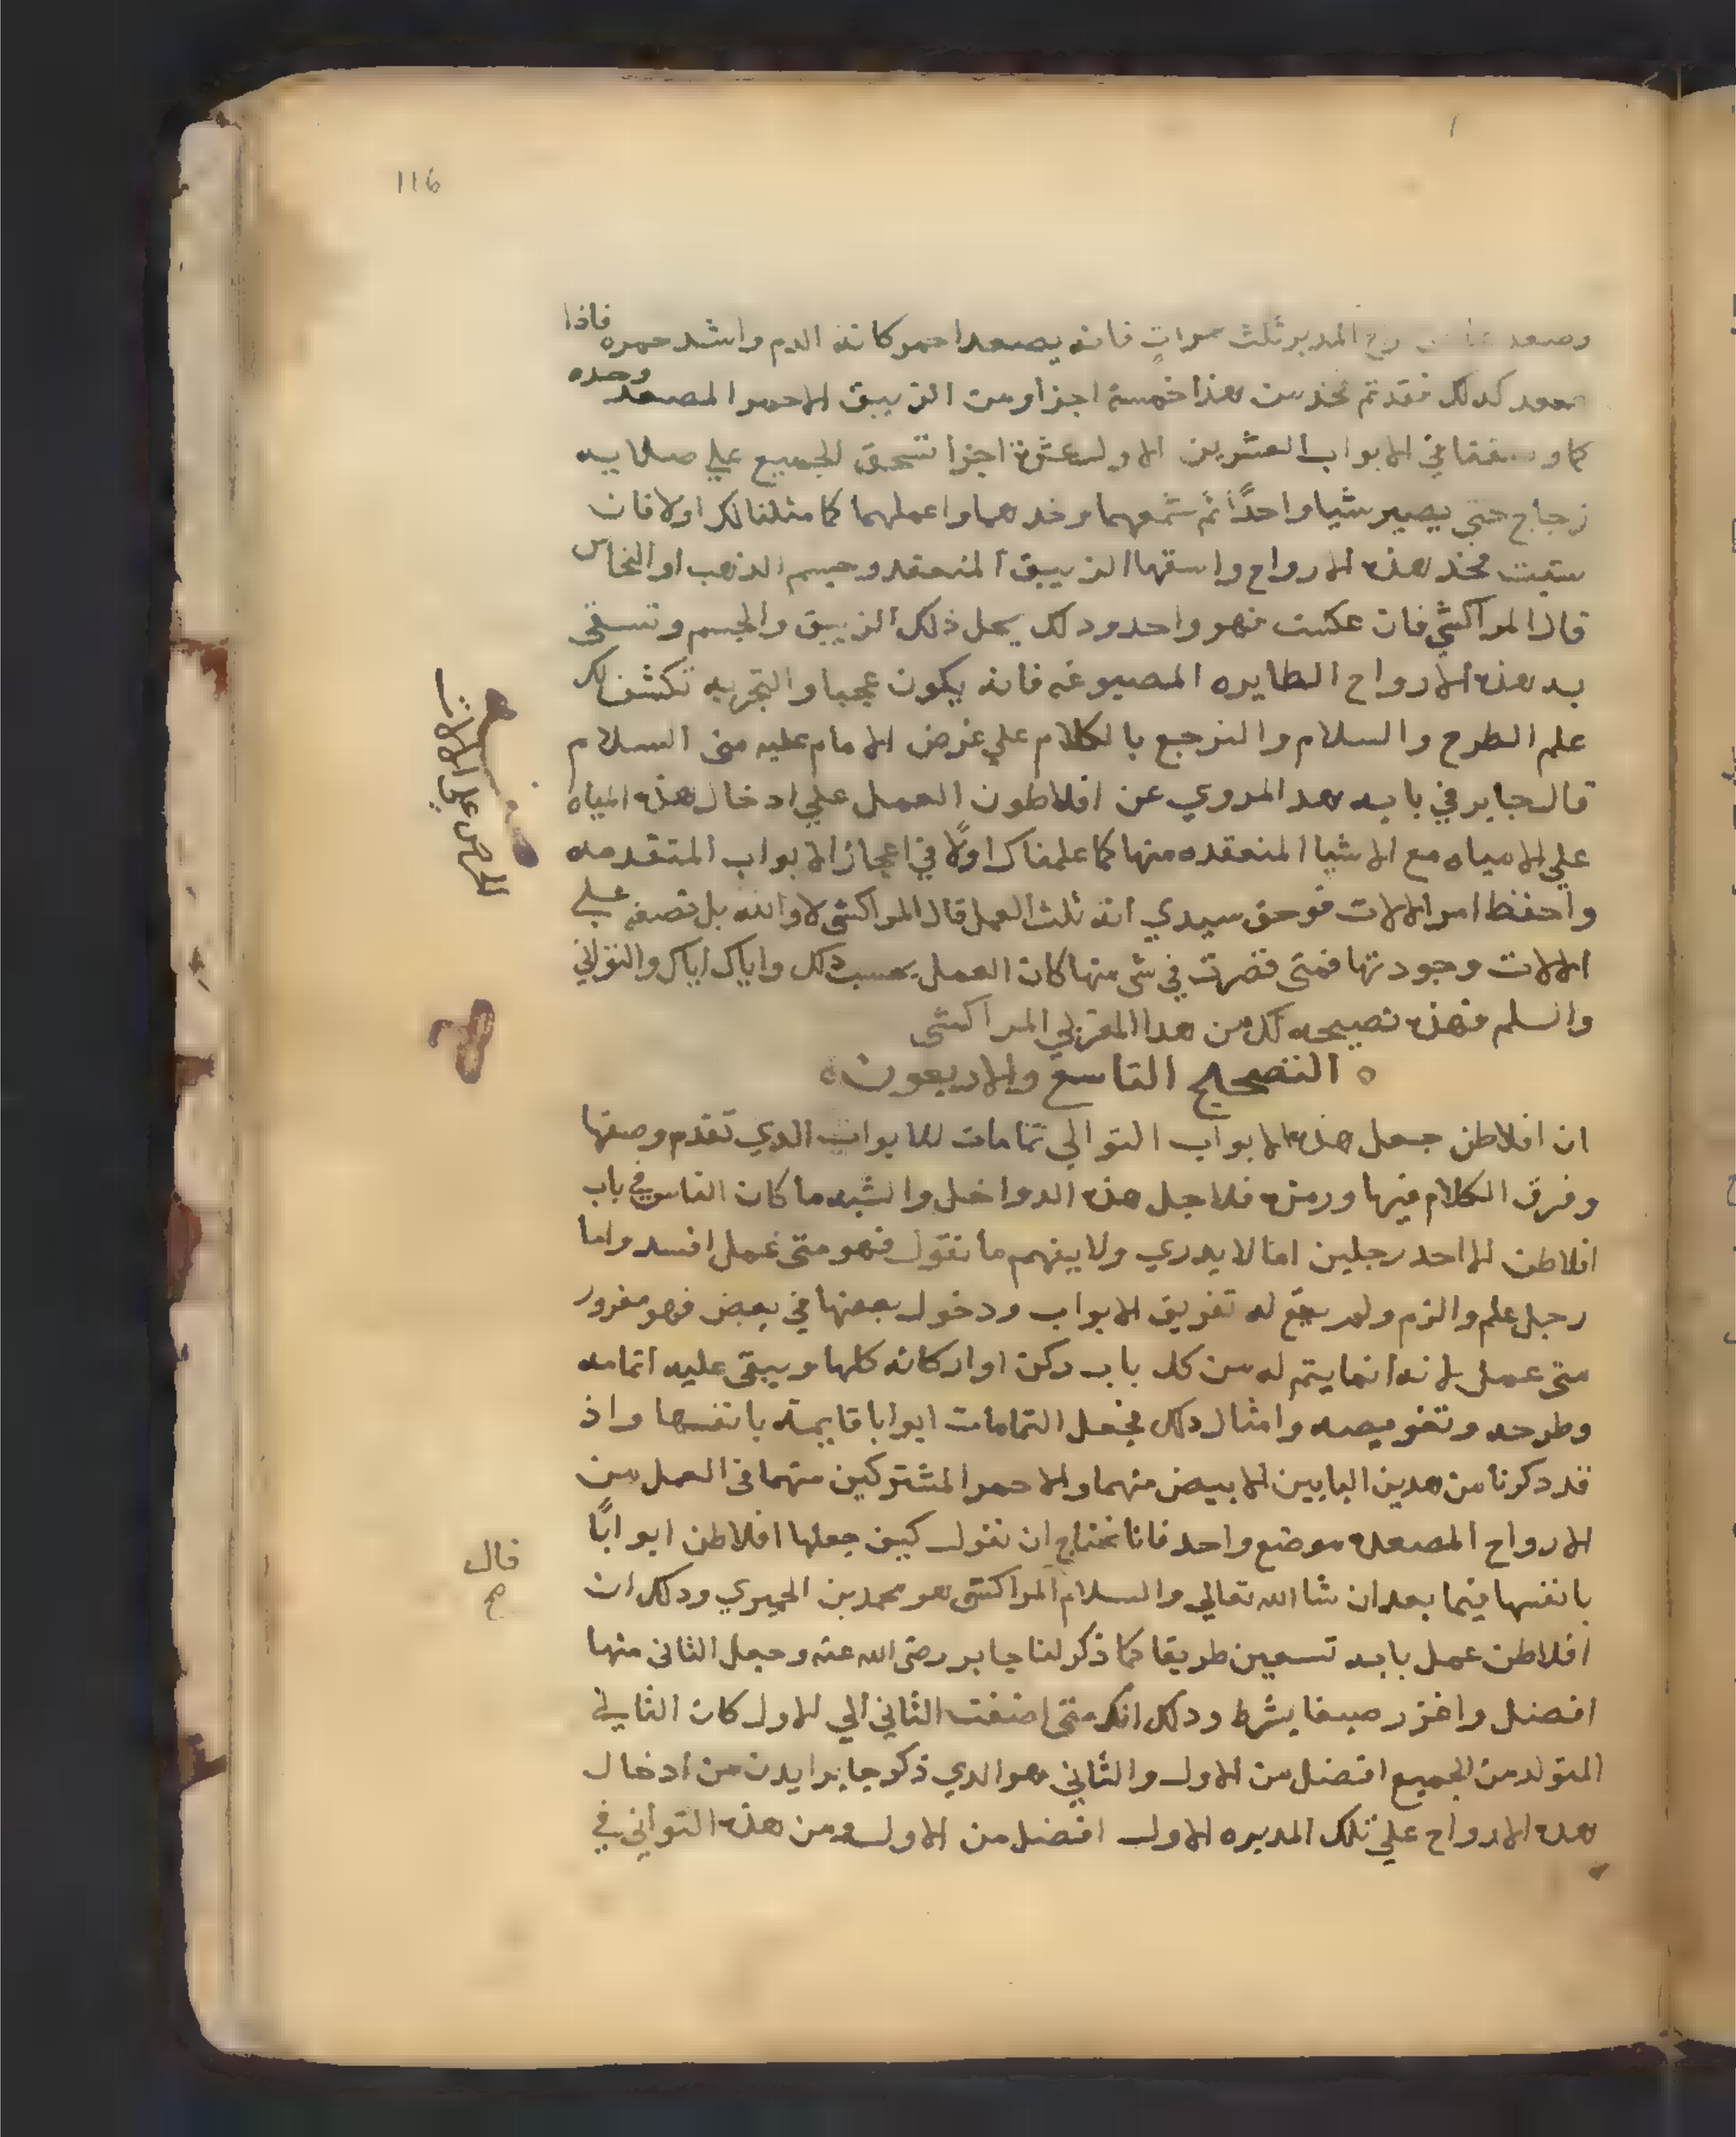 116
وصعد الروح المدبر ثلث مرات فانه يصعد احمر كانه الدم واشد حمره فاذا
صعد كدلك فقد تم فخذ من هذا خمسة اجزا ومن الزيبق الاحمر المصعد وحده
كما وصفنا في الابواب العشرين الاول عشرة اجزا تسحق الجميع علي صلايه
زجاج حتي يصير شيا واحدًا ثم شمعهما وخدهما واعملهما كما مثلنا لك اولا فان
شيت فخذ هذه الارواح واسقها الزيبق المنعقد وجسم الذهب او النحاس
قال المراكشي فان عكست فهو واحد ودلك يحل ذلك الزيبق والجسم وتسقي
به هذه الارواح الطايره المصبوغه فانه يكون عجبا والتجربه تكشف لك
علم الطرح والسلام والنرجع بالكلام علي غرض الامام عليه مني السلام
قال جابر في بابه هدا المروي عن افلاطون العمل علي ادخال هذه المياه
علي الامياه مع الاشيا المنعقده منها كما علمناك اولًا في اعجاز الابواب المتقدمه
واحفظ امر الالات فوحق سيدي انه ثلث العمل قال المراكشي لا والله بل نصفه علي
الالات وجودتها فمتي قصرت في شي منها كان العمل بحسب دلك واياك اياك والتواني
والسلم فهذه نصيحه لك من هدا المغربي المراكشي
ه التصحيح التاسع والاربعون ه
ان افلاطن جعل هذه الابواب التوالي تمامات للابواب الدي تقدم وصفها
وفرق الكلام فيها ورمزه فلاجل هذه الدواخل والشبه ما كان الناس في باب
افلاطن الا احد رجلين اما لا يدري ولا يفهم ما نقول فهو متي عمل افسد واما
رجل علم والزم ولم يقع له تفريق الابواب ودخول بعضها في بعض فهو مغرور
متي عمل لانه انما يتم له من كل باب ركن او اركانه كلها ويبقي عليه اتمامه
وطرحه وتغويصه وامثال دلك فجعل التمامات ابوابا قايمة بانفسها واذ
قد دكرنا من هدين البابين الابيض منهما والاحمر المشتركين منهما في العمل من
الارواح المصعده موضع واحد فانا نحتاج ان نقول كيف جعلها افلاطن ابوابًا
بانفسها فيما بعد ان شا الله تعالي والسلام المراكشي هو محمد بن الحميري ودلك ان
افلاطن عمل بابه تسعين طريقا كما ذكر لنا جابر رضي الله عنه وجعل الثاني منها
افضل واغزر صبغا بشرط ودلك انك متي اضفت الثاني الي الاول كان الثاني
المتولد من الجميع افضل من الاول والثاني هو الدي ذكر جابر ايدن من ادخال
هده الارواح علي تلك المدبره الاول افضل من الاول ومن هذه التواني في
الحرص علي الالات
قال
صح